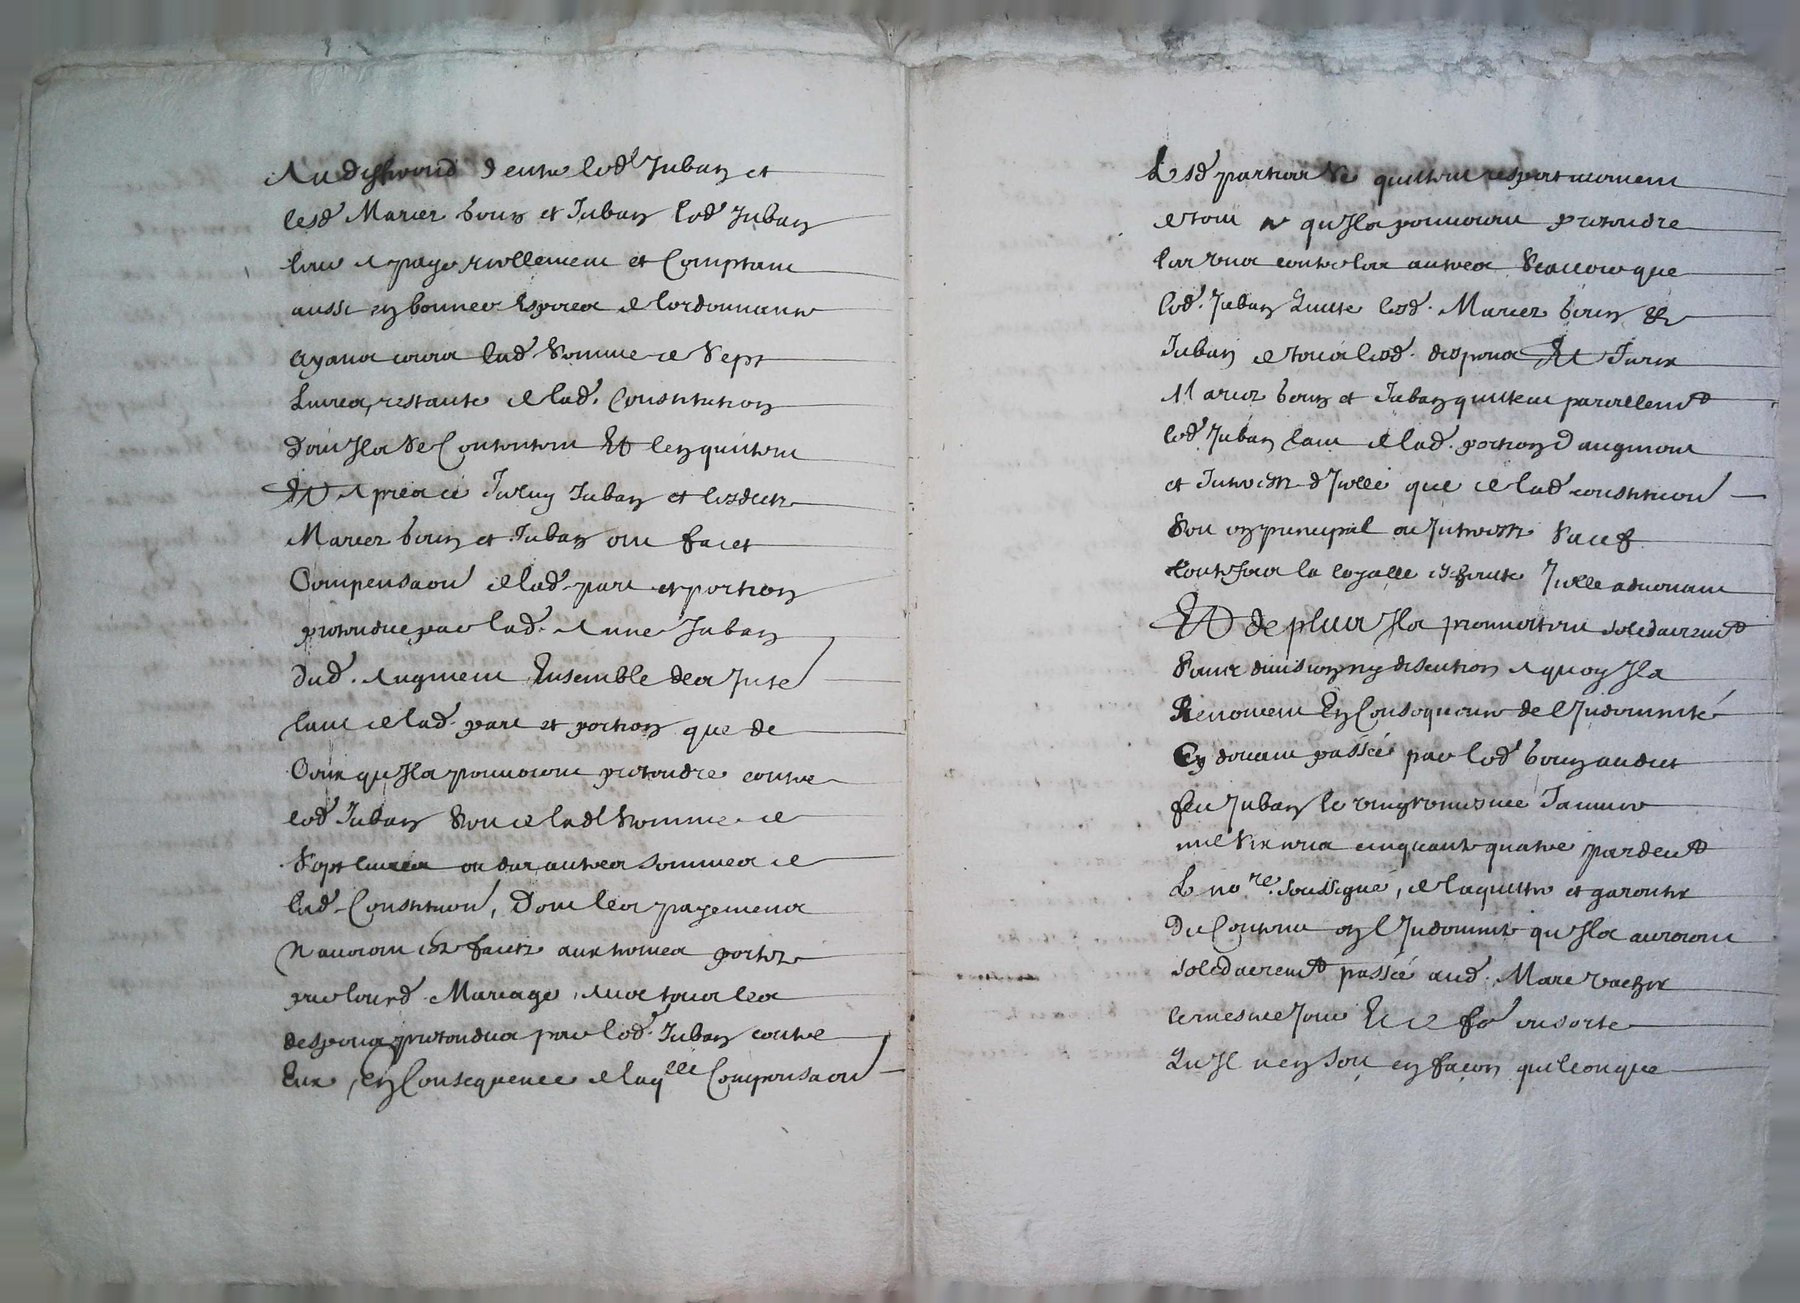 d'entre led.t Juban et
lesd. Mariez bouy et Juban led.t Juban
leur a payé reellement et Comptant
aussy en bonnes Especes de lordonnance
ayans cours lad. somme de sept
Livres, restante de lad. Constitution
Dont Ils se Contentent Et len quittent
Et apres ce Juban et lesdictz
Mariez bouy et Juban ont faict
Compensaon de lad. part et portion
pretendue par lad. Anne Juban
dud. Augment Ensemble des
de lad. part et portion que de
Ceux qu'Ils pouvoient pretendre contre
led.t Juban de lad. somme de
sept livres ou des autres sommes de
lad. Constituon, Dont les payements
n'auroient este faictz aux termes portez
par leurd. Mariage, tous les
despens pretendus par led.t Juban contre
Eux, En Consequence de laq.lle Compensaon
Lesd. parties se quittent respectivement
de tout ce qu'Ils pouvoient pretendre
les uns contre les autres Scavoir que
led.t Juban quitte lesd. Mariez bouy et
Juban de tous lesd. despens Et Iceux
Mariez bouy et Juban quittent pareillem.t
led.t Juban de lad. portion d'augment
et Interestz d'Icelle que de lad. constituon
soit en principal ou Interestz sauf
toutesfois la loyalle Icelle advenant
Et de plus Ils promettent solidairem.t
sans division ny discution a quoy Ils
Renoncent En Consequence de l'Indemnité
Cy devant passée par led.t bouy audict
feu Juban le Janvier
mil six cens cinquante quatre pardev.t
Le no.re soussigné, de l'aquitter et garentir
Du Contenu en l'Indemnité qu'Ils auroient
solidairem.t passée aud. Marc
le mesme Jour Et ce en sorte
Qu'Il n'en soit en façon quelconque